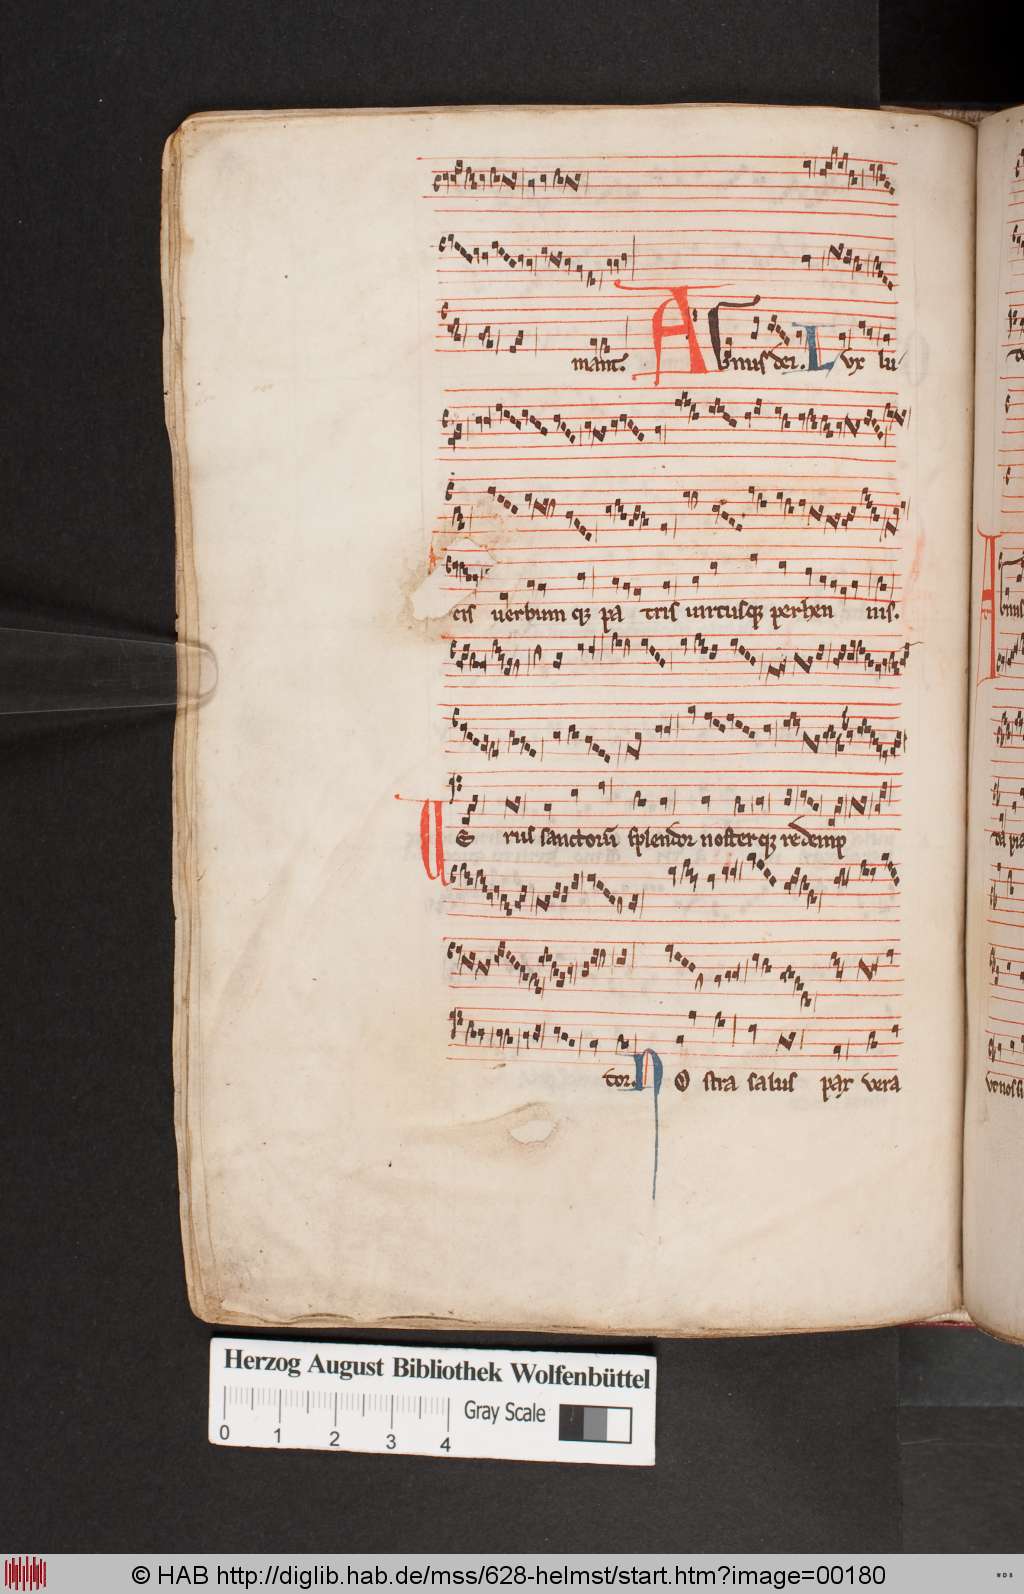 mant. Agnus dei. Lux lu
cis uerbumqz patris uirtusqz perhennis.
Verus sanctorum splendor nosterqz redemp
tor. Nostra salus pax vera
Herzog August Bibliothek Wolfenbüttel
Gray Scale
0 1 2 3 4
© HAB http://diglib.hab.de/mss/628-helmst/start.htm?image=00180